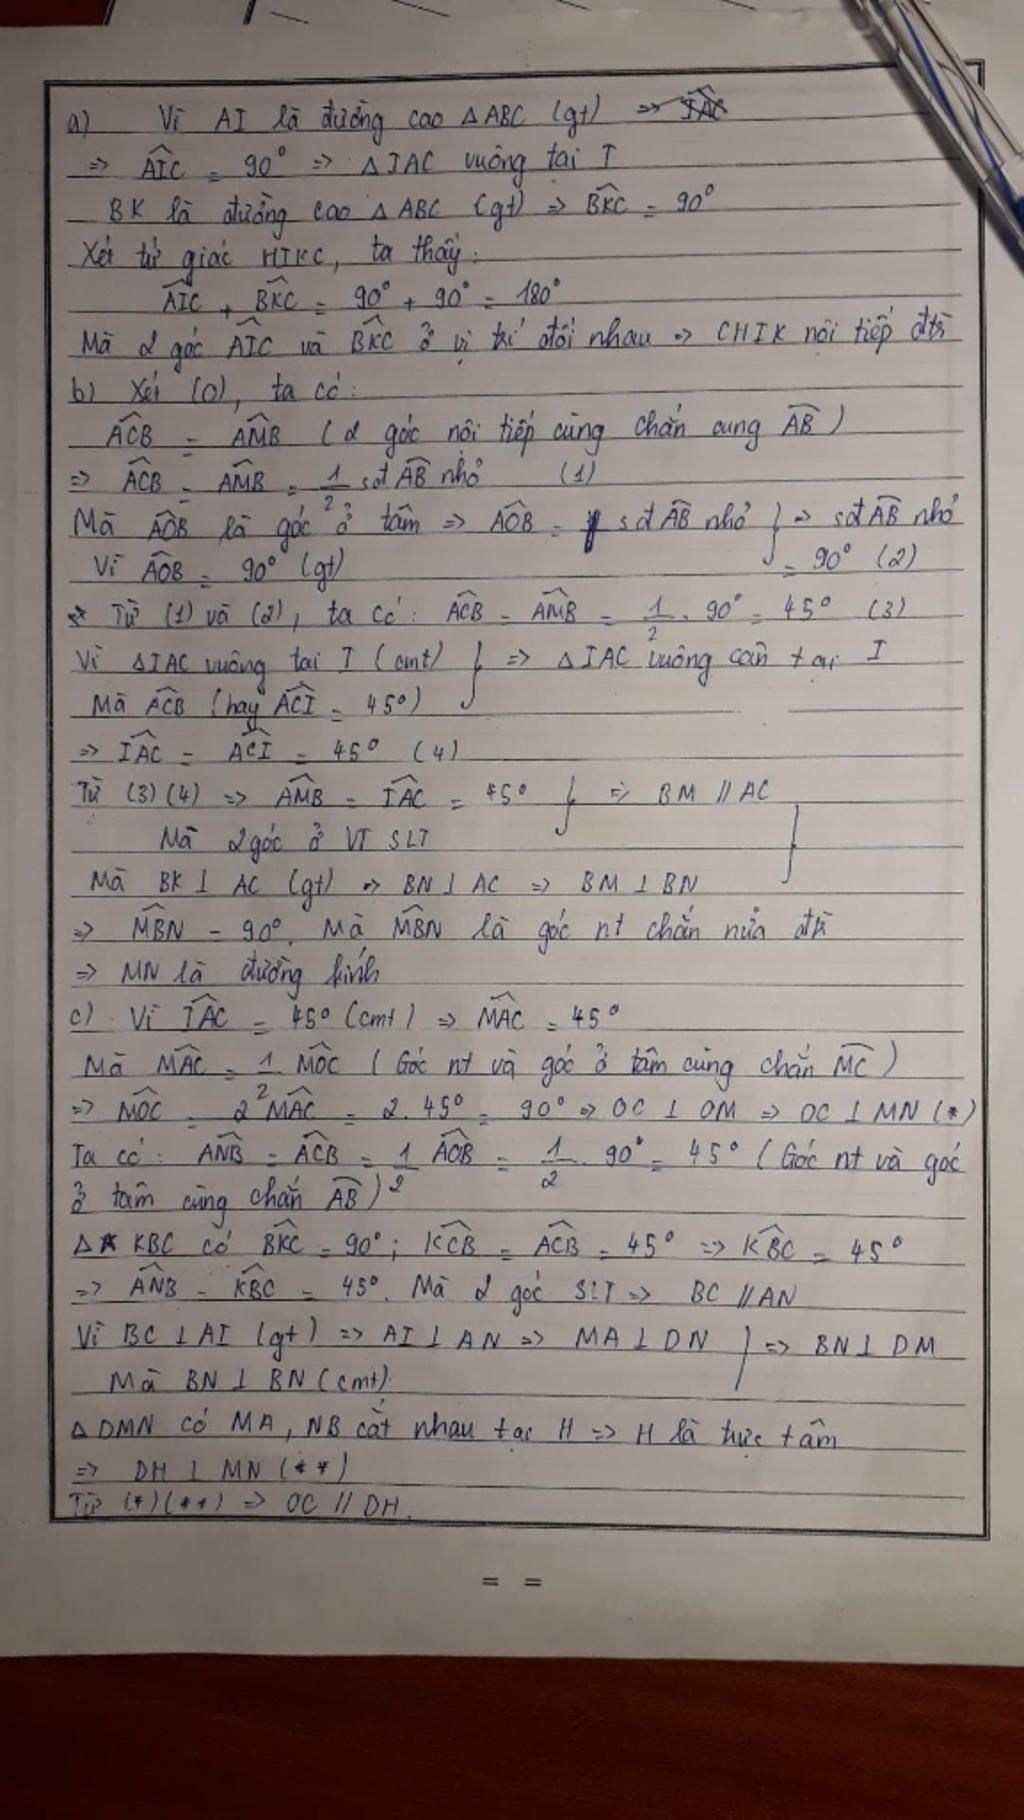 a) Vì AI là đường cao △ABC (gt) => IAC
=> AIC = 90° => △IAC vuông tại I
BK là đường cao △ABC (gt) => BKC = 90°
Xét tứ giác HIKC, ta thấy:
AIC + BKC = 90° + 90° = 180°
Mà 2 góc AIC và BKC ở vị trí đối nhau => CHIK nội tiếp đtr
b) Xét (O), ta có:
ACB = AMB (2 góc nội tiếp cùng chắn cung AB)
=> ACB = AMB = 1/2 sđ AB nhỏ (1)
Mà AOB là góc ở tâm => AOB = sđ AB nhỏ } => sđ AB nhỏ
Vì AOB = 90° (gt) = 90° (2)
=> Từ (1) và (2), ta có: ACB = AMB = 1/2 . 90° = 45° (3)
Vì △IAC vuông tại I (cmt) } => △IAC vuông cân tại I
Mà ACB (hay ACI = 45°)
=> IAC = ACI = 45° (4)
Từ (3) (4) => AMB = IAC = 45° } => BM // AC
Mà 2 góc ở VT SLT }
Mà BK ⊥ AC (gt) => BN ⊥ AC => BM ⊥ BN
=> MBN = 90°. Mà MBN là góc nt chắn nửa đtr
=> MN là đường kính
c) Vì IAC = 45° (cmt) => MAC = 45°
Mà MAC = 1/2 MOC (Góc nt và góc ở tâm cùng chắn MC)
=> MOC = 2 MAC = 2. 45° = 90° => OC ⊥ OM => OC ⊥ MN (*)
Ta có: ANB = ACB = 1/2 AOB = 1/2 . 90° = 45° (Góc nt và góc
ở tâm cùng chắn AB)
△ KBC có BKC = 90°; KCB = ACB = 45° => KBC = 45°
=> ANB = KBC = 45°. Mà 2 góc SLT => BC // AN
Vì BC ⊥ AI (gt) => AI ⊥ AN => MA ⊥ DN } => BN ⊥ DM
Mà BN ⊥ BN (cmt)
△DMN có MA, NB cắt nhau tại H => H là trực tâm
=> DH ⊥ MN (**)
Từ (*) (**) => OC // DH.
= =